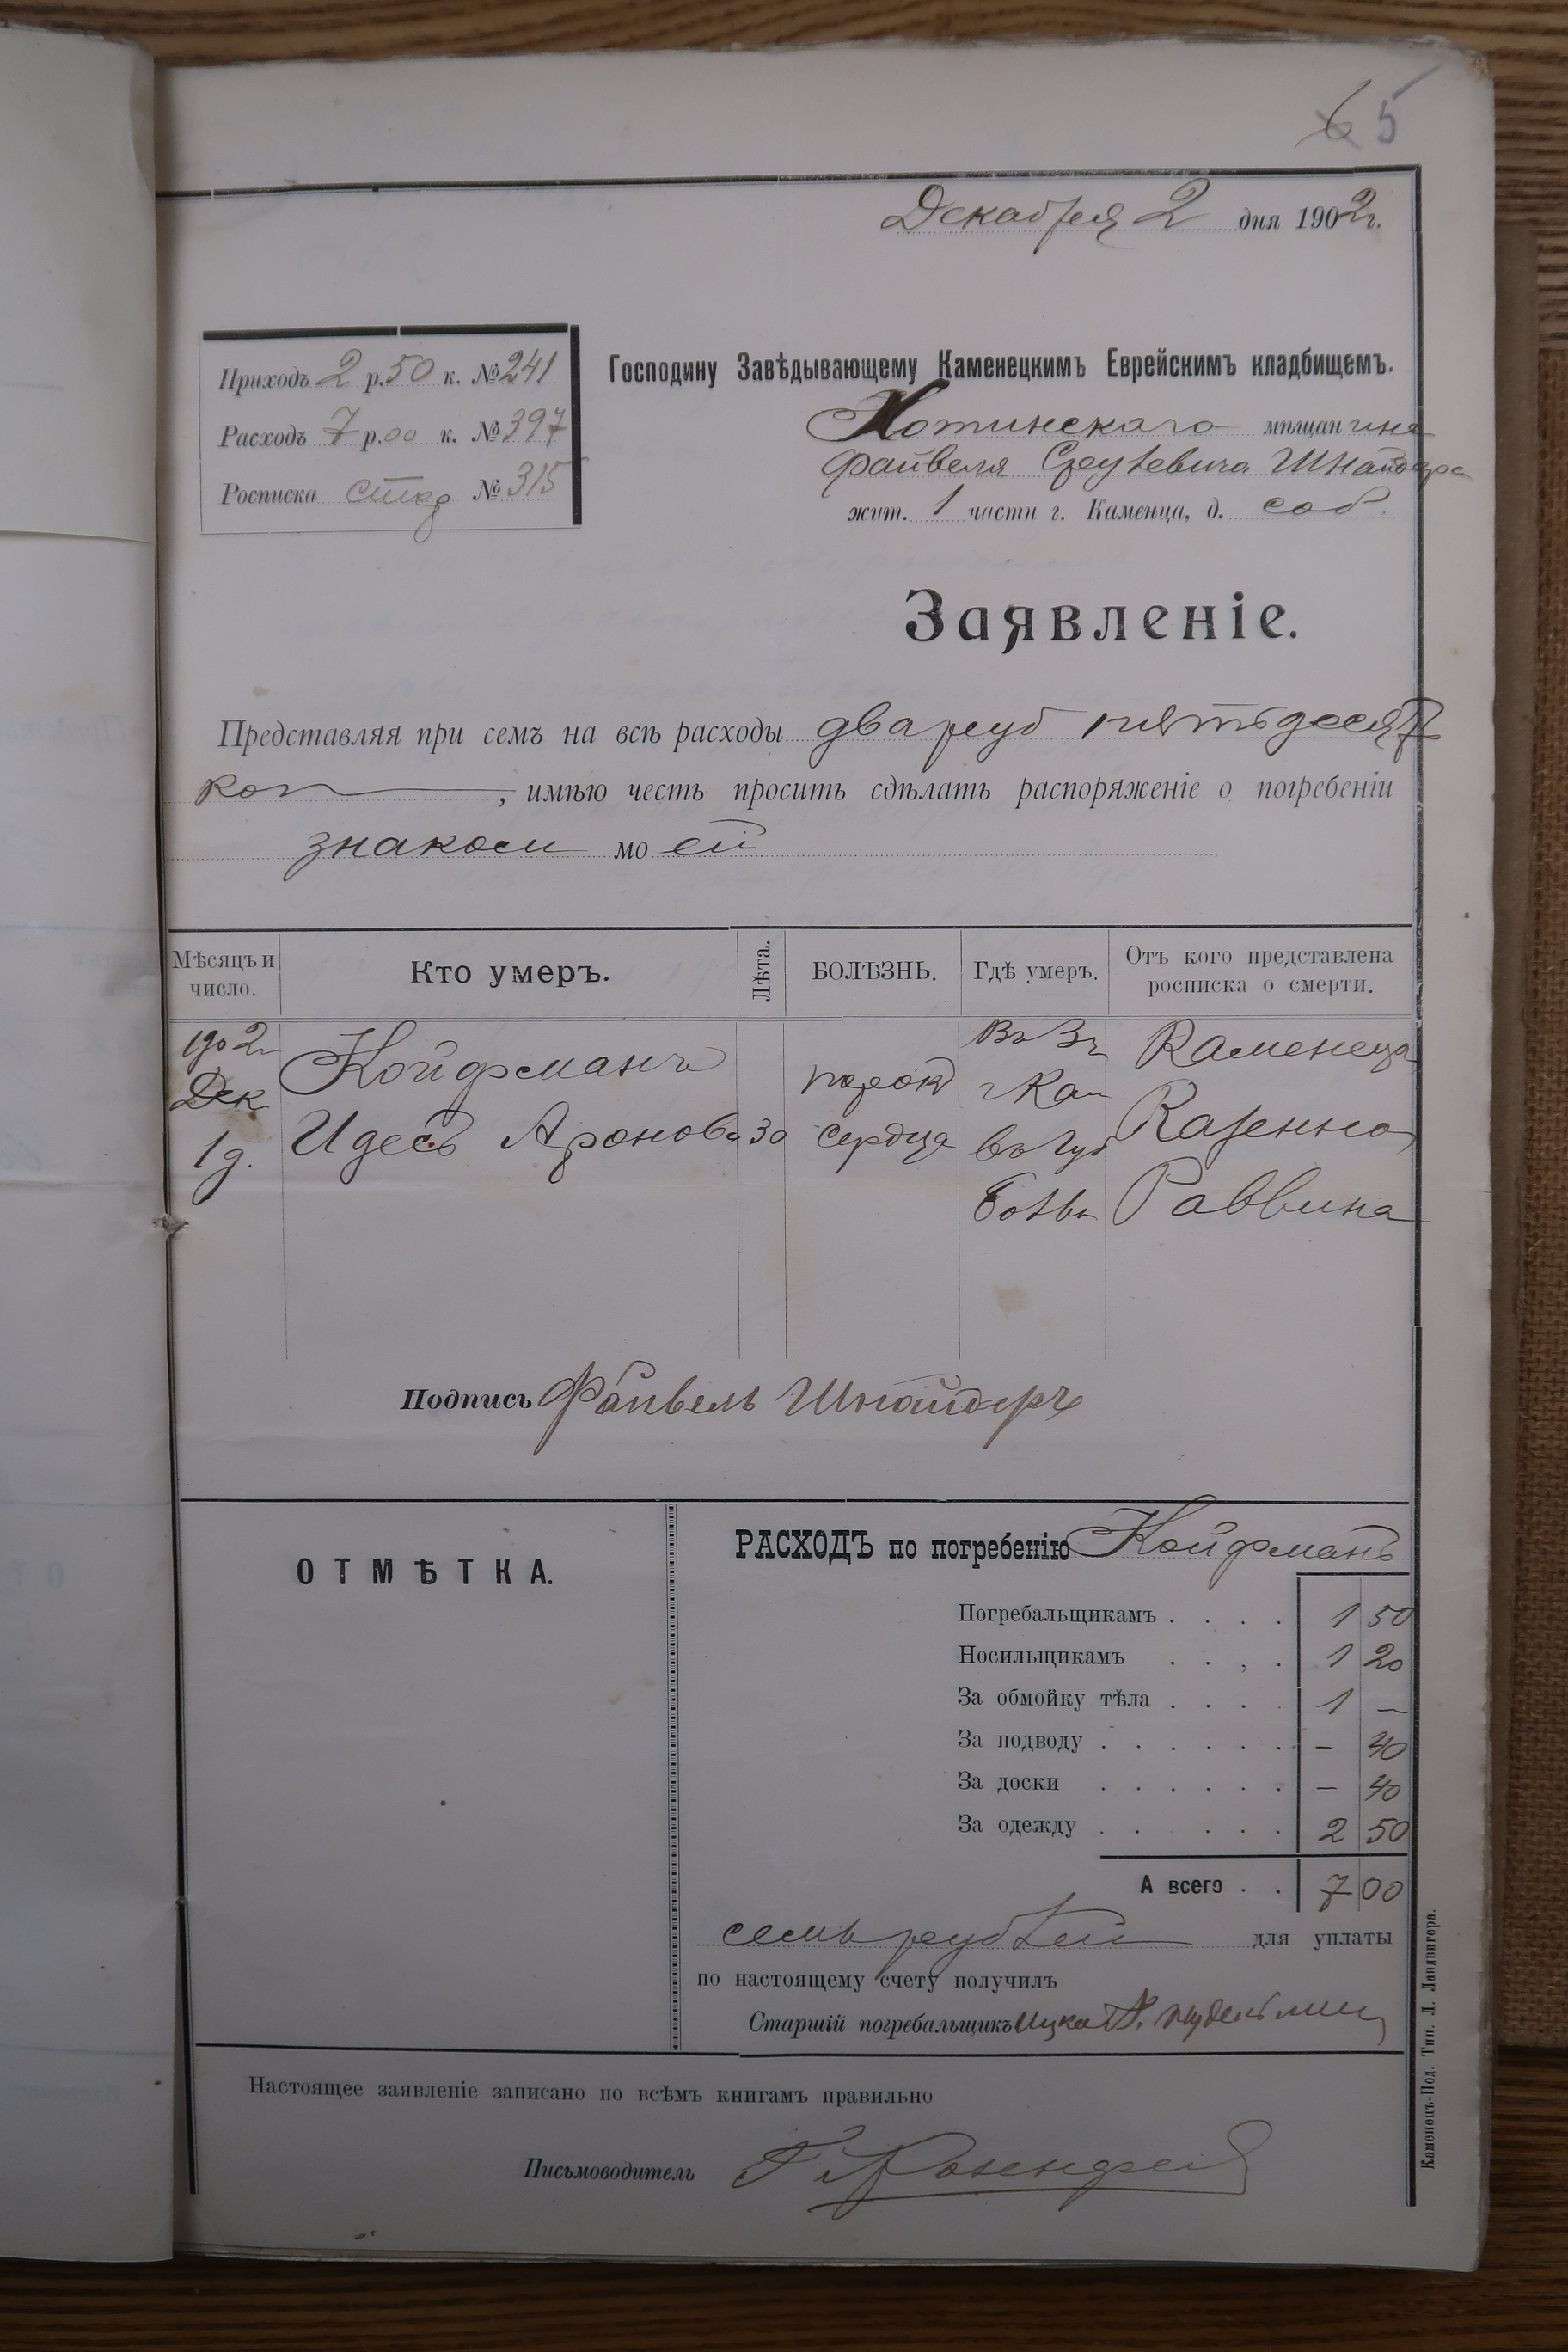 6 5
Декабря 2 дня 1902 г.
Приходъ 2 р. 50 к. № 241
Расходъ 7 р. 00 к. № 397
Росписка № 315
Господину Завѣдывающему Каменецкимъ Еврейскимъ кладбищемъ.
Хотинскаго мѣщанина
Файвеля Шнайдера
жит. 1 части г. Каменца, д. соб.
Заявленіе.
Представляя при семъ на всѣ расходы два руб пятьдесят
коп, имѣю честь просить сдѣлать распоряженіе о погребеніи
знаком моей
Мѣсяцъ и число. Кто умеръ. Лѣта. БОЛѢЗНЬ. Гдѣ умеръ. Отъ кого представлена росписка о смерти.
1902 Койфманъ порокъ Каменеца
Дек Идесь Аронова 30 сердца въ Казенна
1 д. Раввина
Подпись Файвель Шнайдеръ
ОТМѢТКА.
РАСХОДЪ по погребенію Койфманъ
Погребальщикамъ . . . . 1 50
Носильщикамъ . . , . 1 20
За обмойку тѣла . . . . 1 —
За подводу . . . . . . – 40
За доски . . . . . . – 40
За одежду . . . . . . 2 50
А всего . . 7 00
семь рублей для уплаты
по настоящему счету получилъ
Старшій погребальщикъ Ицка
Настоящее заявленіе записано по всѣмъ книгамъ правильно
Письмоводитель
Каменецъ-Под. Тип. Л. Ландвигера.